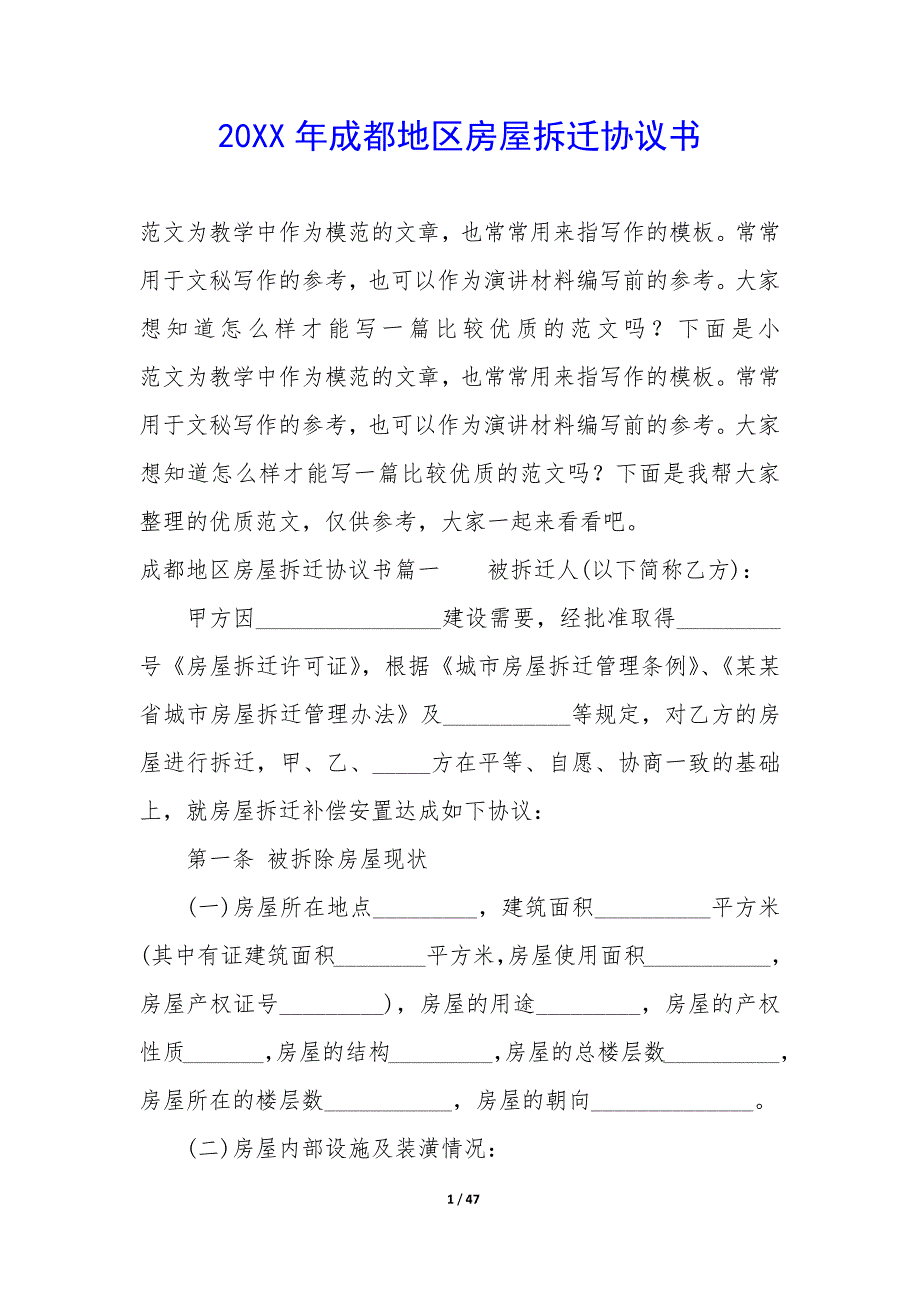 20XX 年成都地区房屋拆迁协议书
范文为教学中作为模范的文章，也常常用来指写作的模板。常常
用于文秘写作的参考，也可以作为演讲材料编写前的参考。大家
想知道怎么样才能写一篇比较优质的范文吗？下面是小
范文为教学中作为模范的文章，也常常用来指写作的模板。常常
用于文秘写作的参考，也可以作为演讲材料编写前的参考。大家
想知道怎么样才能写一篇比较优质的范文吗？下面是我帮大家
整理的优质范文，仅供参考，大家一起来看看吧。
成都地区房屋拆迁协议书篇一　　被拆迁人(以下简称乙方)：
甲方因________________建设需要，经批准取得_________
号《房屋拆迁许可证》，根据《城市房屋拆迁管理条例》、《某某
省城市房屋拆迁管理办法》及___________等规定，对乙方的房
屋进行拆迁，甲、乙、_____方在平等、自愿、协商一致的基础
上，就房屋拆迁补偿安置达成如下协议：
第一条 被拆除房屋现状
(一)房屋所在地点_________，建筑面积__________平方米
(其中有证建筑面积________平方米,房屋使用面积___________，
房屋产权证号_________)，房屋的用途_________，房屋的产权
性质_______,房屋的结构_________,房屋的总楼层数__________，
房屋所在的楼层数___________，房屋的朝向______________。
(二)房屋内部设施及装潢情况：
1 / 47